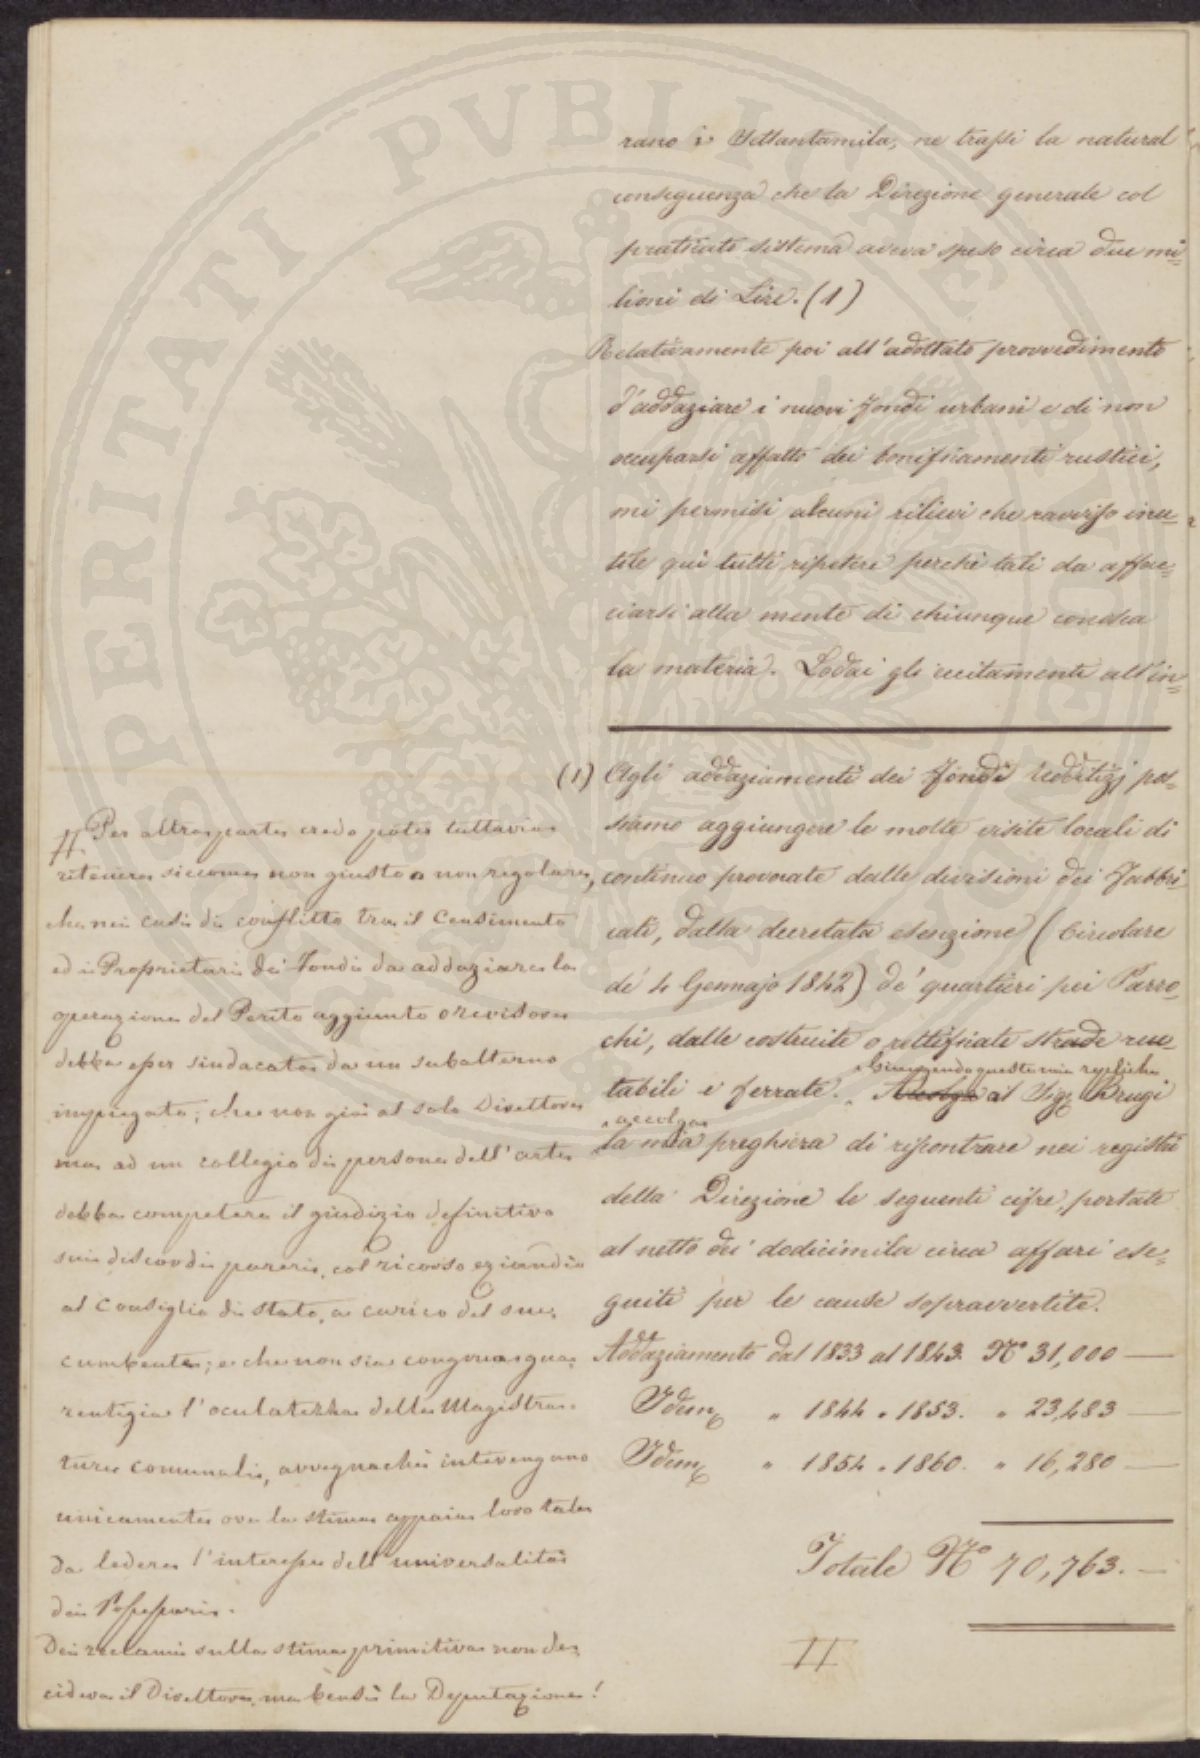 rano i Settantamila, ne trassi la natural
conseguenza che la Direzione generale col
praticato sistema aveva speso circa due mi=
lioni di Lire. (1)
Relativamente poi all'adottato provvedimento
d'addaziare i nuovi fondi urbani e di non
occuparsi affatto dei bonificamenti rustici,
mi permisi alcuni rilievi che ravviso inu=
tile qui tutti ripetere perchè tali da affac=
ciarsi alla mente di chiunque conosca
la materia. Lodai gli eccitamenti all'in=
(1) Agli addaziamenti dei fondi redditizj pos=
siamo aggiungere le molte visite locali di
continuo provocate dalle divisioni dei Fabbri=
cati, dalla decretata esenzione (Circolare
de' 4 Gennajo 1842) de' quartieri pei Parro=
chi, dalle costruite o rettificate strade ruo=
tabili e ferrate. Accolga al Sig. Brugi
Giungendo questa mia replica
accolga
la mia preghiera di riscontrare nei registri
della Direzione le seguenti cifre, portate
al netto dei dodicimila circa affari ese=
guiti per le cause sopravvertite.
Addaziamento dal 1833 al 1843. N° 31,000 —
Idem „ 1844 „ 1853. „ 23,483 —
Idem „ 1854 „ 1860. „ 16,280 —
Totale N° 70,763. —
Per altra parte credo poter tuttavia
ritenere siccome non giusto o non regolare,
che nei casi di conflitto tra il Censimento
ed i Proprietari dei Fondi da addaziare la
operazione del Perito aggiunto o revisore
debba esser sindacata da un subalterno
impiegato; che non già al solo Direttore
ma ad un collegio di persone dell'arte
debba competere il giudizio definitivo
sui discordi pareri, col ricorso eziandio
al Consiglio di Stato, a carico del suc=
cumbente; e che non sia congrua gua=
rentigia l'oculatezza delle Magistra=
ture comunali, avvegnachè intervengano
unicamente ove la stima appaia loro tale
da ledere l'interesse dell'universalità
dei Possessori.
Dei reclami sulla stima primitiva non de=
cideva il Direttore, ma bensì la Deputazione!